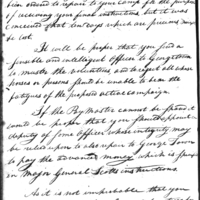 been ordered to repair to your Camp for the purpose
of receiving your final instructions but it was
conceived that two days which are precious may
be lost.
It will be proper that you find a
sensible and intelligent officer to Georgetown
to muster the volunteers and to reject all whose
horses or persons should be unable to bear the
fatigues of the proposed active campaign.
If the Pay Master cannot be spared it
would be proper that you should appoint a
deputy of some officer whose integrity may
be relied upon to also repair to George Town
to pay the advance money which is spoken
in Major General Scotts instructions
As it is not improbable that you